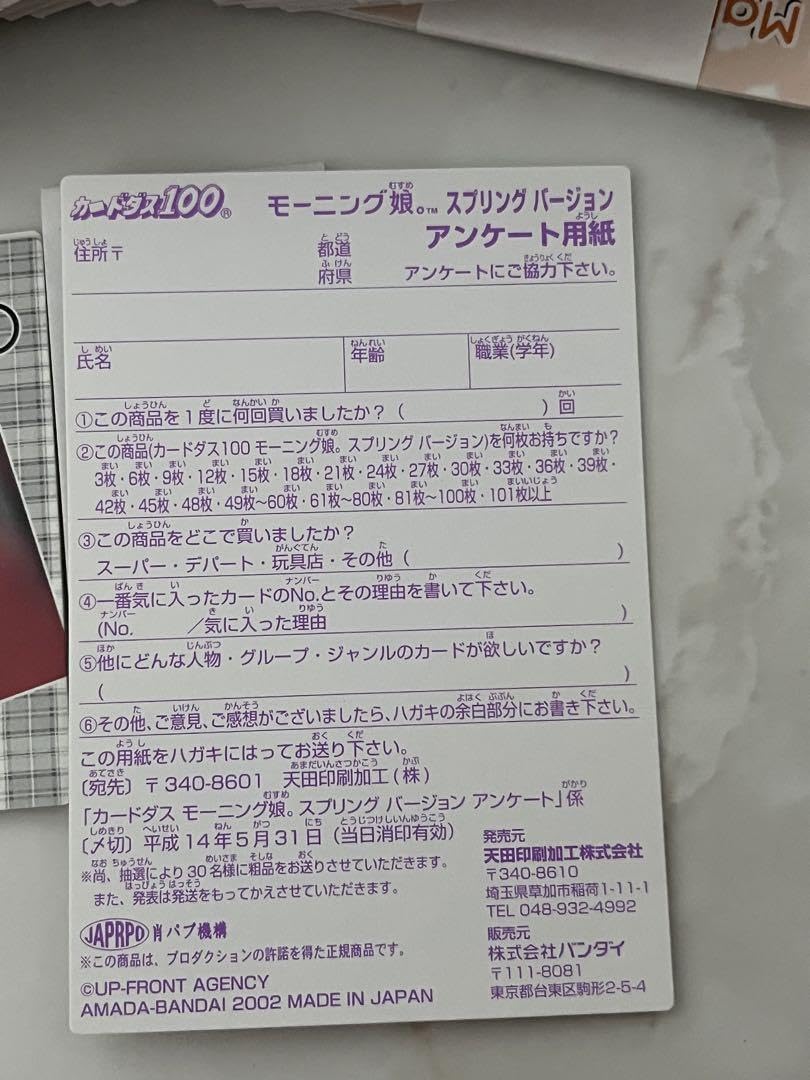 カードダス100® モーニング娘。™ スプリング バージョン
アンケート用紙
住所〒 都道府県 アンケートにご協力下さい。
氏名 年齢 職業(学年)
①この商品を1度に何回買いましたか？( )回
②この商品(カードダス100 モーニング娘。スプリング バージョン)を何枚お持ちですか？
3枚・6枚・9枚・12枚・15枚・18枚・21枚・24枚・27枚・30枚・33枚・36枚・39枚・
42枚・45枚・48枚・49〜60枚・61枚〜80枚・81枚〜100枚・101枚以上
③この商品をどこで買いましたか？
スーパー・デパート・玩具店・その他( )
④一番気に入ったカードのNo.とその理由を書いて下さい。
(No. ／気に入った理由 )
⑤他にどんな人物・グループ・ジャンルのカードが欲しいですか？
( )
⑥その他、ご意見、ご感想がございましたら、ハガキの余白部分にお書き下さい。
この用紙をハガキにはってお送り下さい。
〔宛先〕〒340-8601 天田印刷加工(株)
「カードダス モーニング娘。スプリング バージョン アンケート」係
〔〆切〕平成14年5月31日(当日消印有効)
※尚、抽選により30名様に粗品をお送りさせていただきます。
また、発表は発送をもってかえさせていただきます。
JAPRPO 肖パブ機構
※この商品は、プロダクションの許諾を得た正規商品です。
©UP-FRONT AGENCY
AMADA-BANDAI 2002 MADE IN JAPAN
発売元
天田印刷加工株式会社
〒340-8610
埼玉県草加市稲荷1-11-1
TEL 048-932-4992
販売元
株式会社バンダイ
〒111-8081
東京都台東区駒形2-5-4